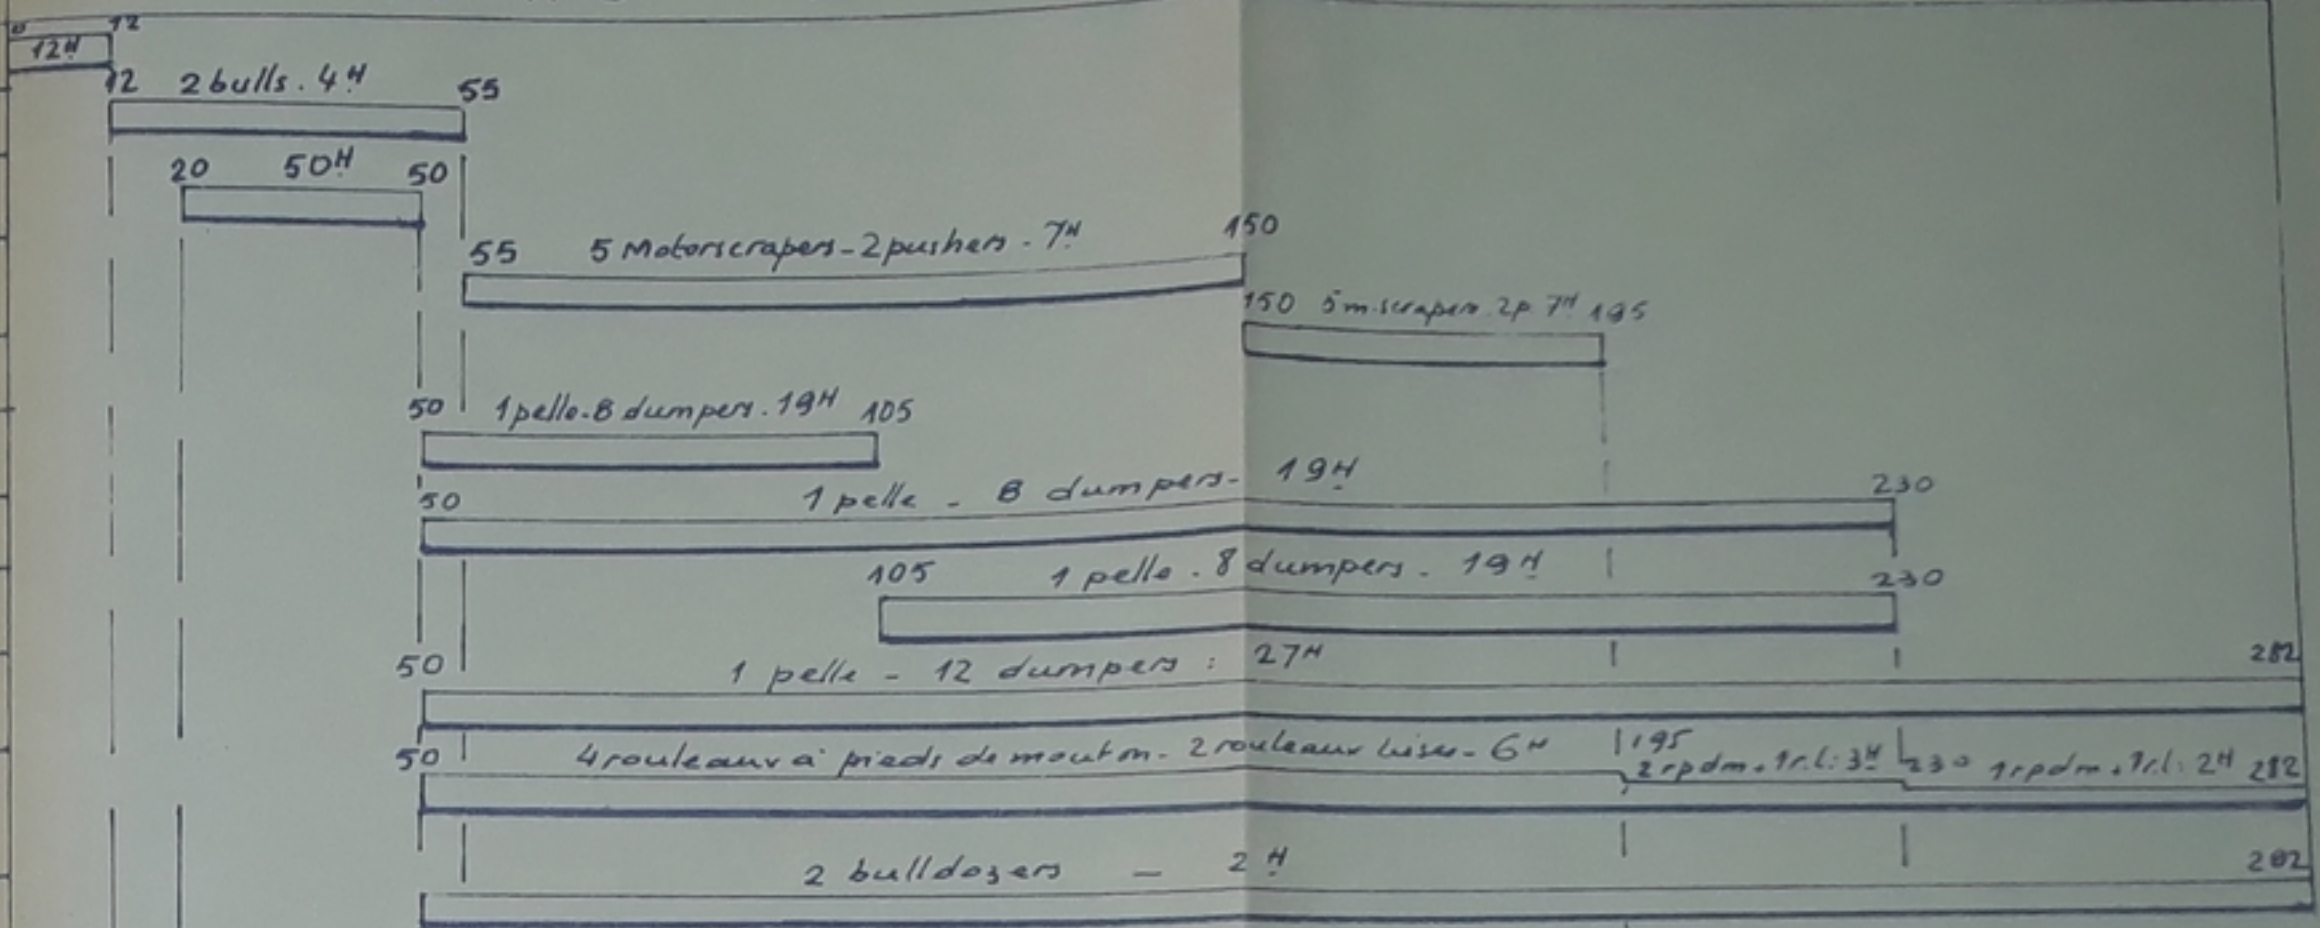 0 12
12H
12 2 bulls. 4H 55
20 50H 50
55 5 Motorscrapers-2 pushers. 7H 150
150 5 m.scrapers. 2p. 7H 195
50 1 pelle-8 dumpers. 19H 105
50 1 pelle - 8 dumpers- 19H 230
105 1 pelle. 8 dumpers. 19H 230
50 1 pelle - 12 dumpers : 27H 282
50 4 rouleaux à pieds de mouton- 2 rouleaux lisses- 6H 195 2rpdm. 1r.l: 3H 230 1rpdm. 1r.l: 2H 282
2 bulldozers - 2H 282